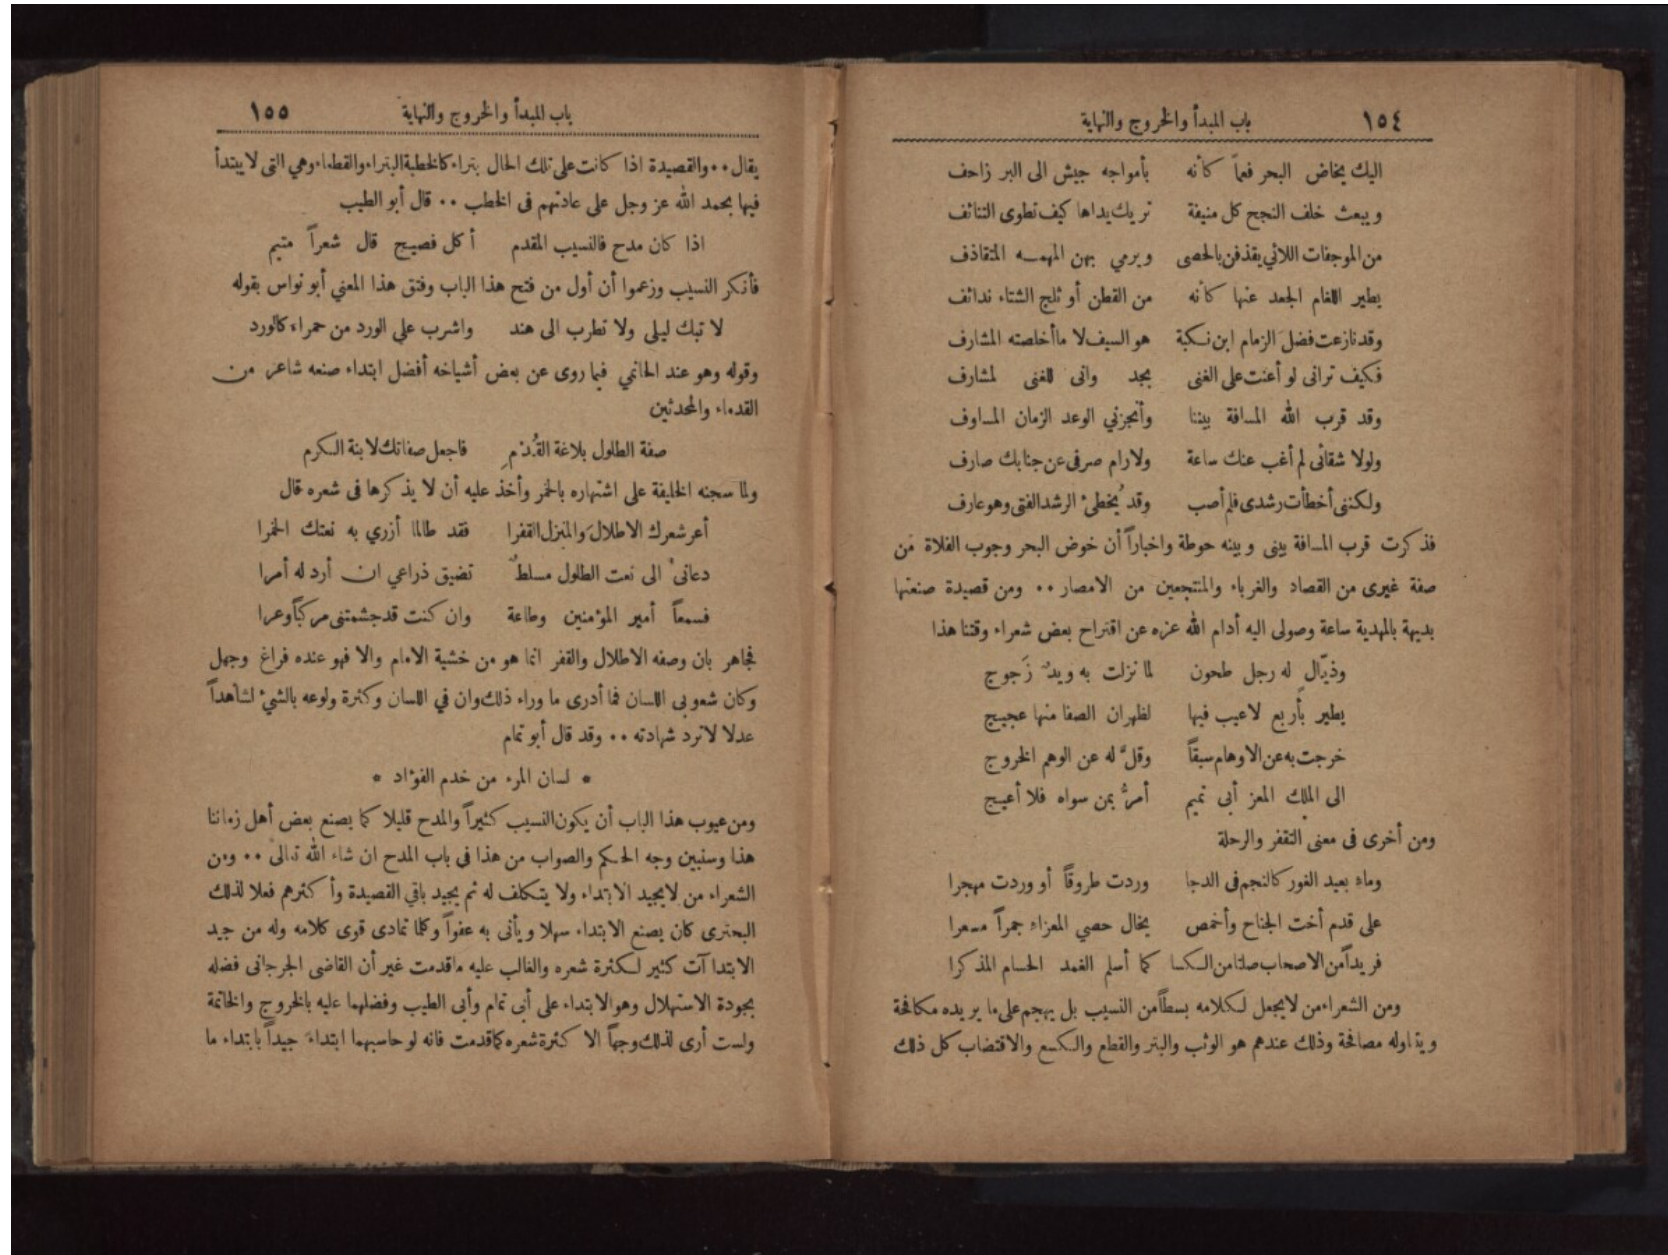 ١٥٤ باب المبدأ والخروج والنهاية
اليك يخاض البحر فعماً كأنه بأمواجه جيش الى البر زاحف
ويبعث خلف النجح كل منيفة تريك يداها كيف تطوى التنائف
من الموجفات اللائي يقذفن بالحصى ويرمي بهن المهمه المتقاذف
يطير اللغام الجعد عنها كأنه من القطن أو ثلج الشتاء ندائف
وقد نازعت فضل الزمام ابن نكبة هو السيف لا ما أخلصته المشارف
فكيف تراني لو أعنت على الغنى بجد وانى للغنى لمشارف
وقد قرب الله المسافة بيننا وأنجزني الوعد الزمان المساوف
ولولا شقائى لم أغب عنك ساعة ولا رام صرفى عن جنابك صارف
ولكننى أخطأت رشدى فلم أصب وقد يُخطئ الرشد الفتى وهو عارف
فذكرت قرب المسافة بينى وبينه حوطة واخباراً أن خوض البحر وجوب الفلاة من
صفة غيرى من القصاد والغرباء والمنتجعين من الامصار ٠٠ ومن قصيدة صنعتها
بديهة بالمهدية ساعة وصولى اليه أدام الله عزه عن اقتراح بعض شعراء وقتنا هذا
وذيّال له رجل طحون لما نزلت به ويدٌ زَجوج
يطير بأربع لاعيب فيها لظهران الصفا منها عجيج
خرجت به عن الاوهام سبقاً وقلَّ له عن الوهم الخروج
الى الملك المعز أبى تميم أمرُّ بمن سواه فلا أعيج
ومن أخرى فى معنى التقفر والرحلة
وماءٍ بعيد الغور كالنجم فى الدجا وردت طروقاً أو وردت مهجرا
على قدم أخت الجناح وأخمص يخال حصي المعزاء جمراً مسعرا
فريداً من الاصحاب صلتا من الكسا كما أسلم الغمد الحسام المذكرا
ومن الشعراء من لايجعل لكلامه بسطاً من النسيب بل يهجم على ما يريده مكافحة
ويتاوله مصافحة وذلك عندهم هو الوثب والبتر والقطع والكسع والاقتضاب كل ذلك
باب المبدأ والخروج والنهاية ١٥٥
يقال ٠٠ والقصيدة اذا كانت على تلك الحال بتراء كالخطبة البتراء والقطعاء وهي التى لا يبتدأ
فيها بحمد الله عز وجل على عادتهم فى الخطب ٠٠ قال أبو الطيب
اذا كان مدح فالنسيب المقدم أكل فصيح قال شعراً متيم
فأنكر النسيب وزعموا أن أول من فتح هذا الباب وفتق هذا المعني أبو نواس بقوله
لا تبك ليلى ولا تطرب الى هند واشرب على الورد من حمراء كالورد
وقوله وهو عند الحاتمي فيما روى عن بعض أشياخه أفضل ابتداء صنعه شاعر من
القدماء والمحدثين
صفة الطلول بلاغة القُدْمِ فاجعل صفاتك لابنة الكرم
ولما سجنه الخليفة على اشتهاره بالخمر وأخذ عليه أن لا يذكرها فى شعره قال
أعر شعرك الاطلال والمنزل القفرا فقد طالما أزري به نعتك الخمرا
دعانى الى نعت الطلول مسلطٌ تضيق ذراعي ان أرد له أمرا
فسمعاً أمير المؤمنين وطاعة وان كنت قد جشمتنى مركباً وعرا
فجاهر بان وصفه الاطلال والقفر انما هو من خشية الامام والا فهو عنده فراغ وجهل
وكان شعوبى اللسان فما أدرى ما وراء ذلك وان في اللسان وكثرة ولوعه بالشيء لشاهداً
عدلا لاترد شهادته ٠٠ وقد قال أبو تمام
* لسان المرء من خدم الفؤاد *
ومن عيوب هذا الباب أن يكون النسيب كثيراً والمدح قليلا كما يصنع بعض أهل زماننا
هذا وسنبين وجه الحكم والصواب من هذا فى باب المدح ان شاء الله تعالى ٠٠ ومن
الشعراء من لايجيد الابتداء ولا يتكلف له ثم يجيد باقي القصيدة وأكثرهم فعلا لذلك
البحترى كان يصنع الابتداء سهلا ويأتى به عفواً وكلما تمادى قوى كلامه وله من جيد
الابتداآت كثير لكثرة شعره والغالب عليه ماقدمت غير أن القاضى الجرجانى فضله
بجودة الاستهلال وهو الابتداء على أبى تمام وأبى الطيب وفضلهما عليه بالخروج والخاتمة
ولست أرى لذلك وجهاً الا كثرة شعره كما قدمت فانه لو حاسبهما ابتداءً جيداً بابتداء ما